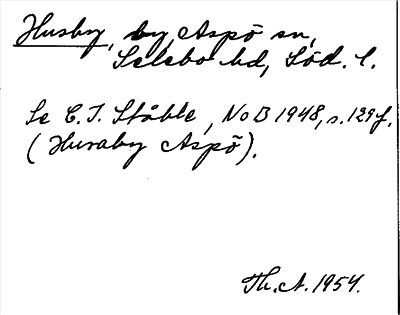 Husby, by, Aspö sn,
Selebo hd, Söd. l.
Se C.I. Ståhle, NoB 1948, s. 129f.
(Husaby Aspö).
Th. A. 1954.